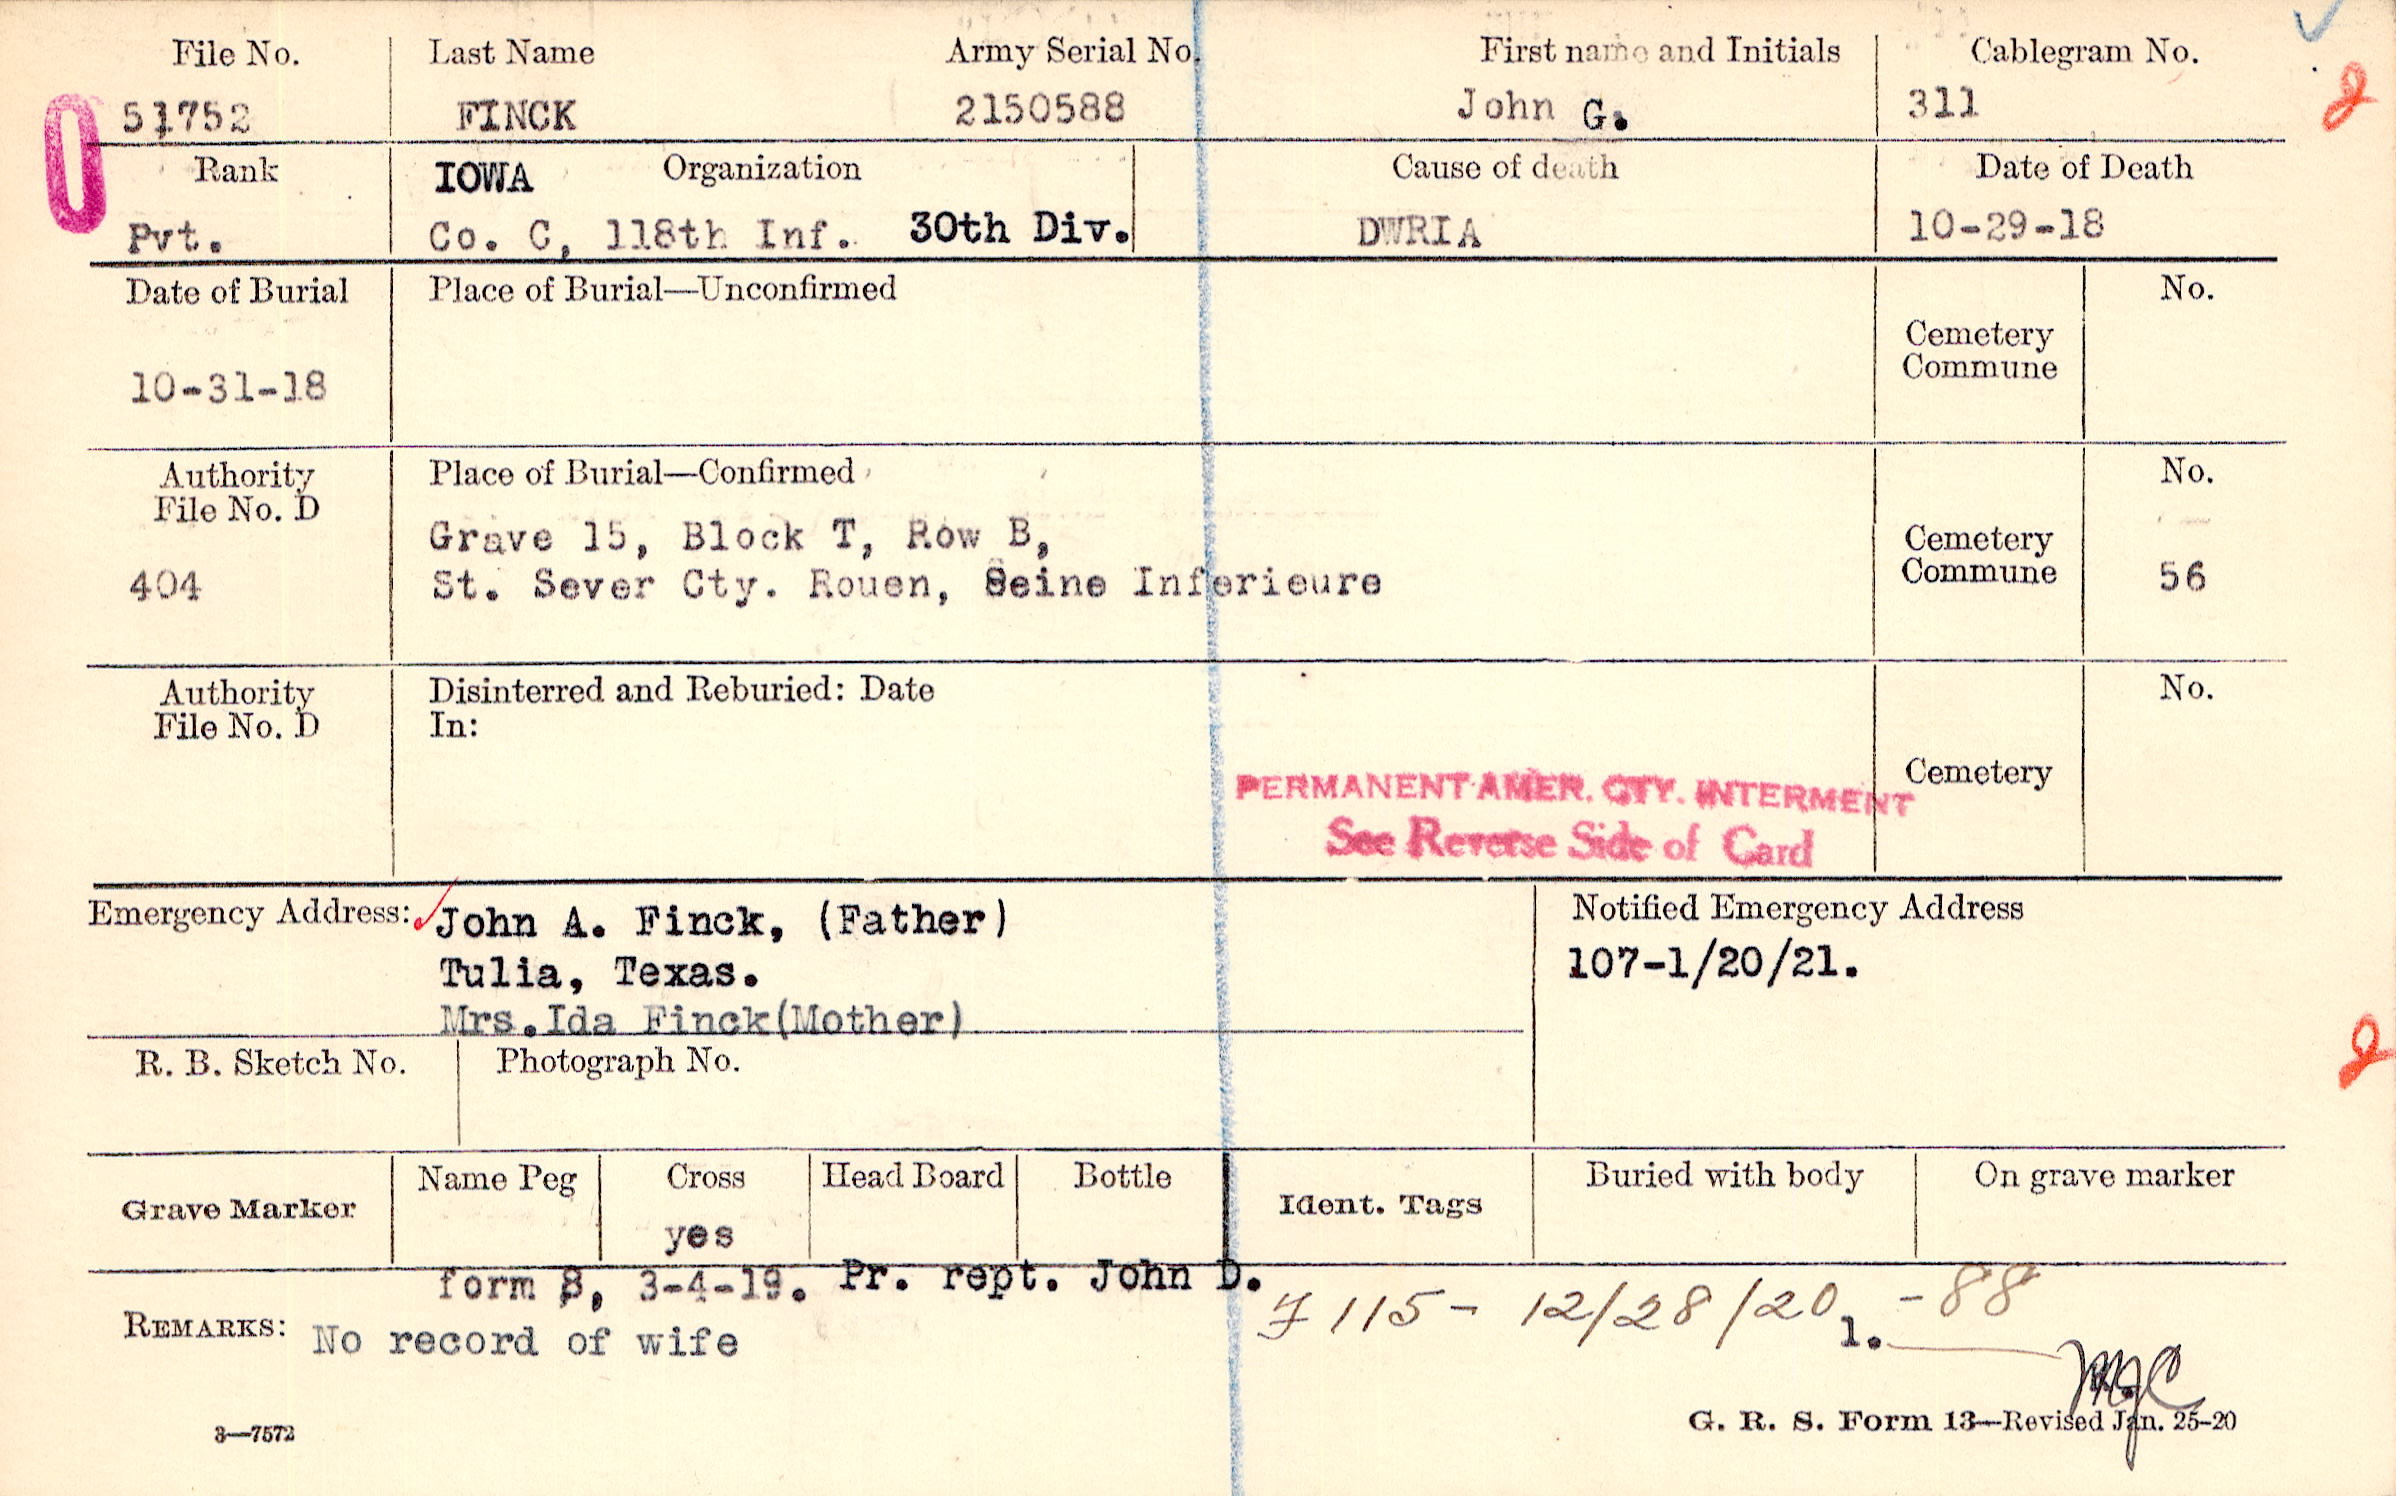 File No. Last Name Army Serial No. First name and Initials Cablegram No.
51752 FINCK 2150588 John G. 311
Rank IOWA Organization Cause of death Date of Death
Pvt. Co. C, 118th Inf. 30th Div. DWRIA 10-29-18
Date of Burial Place of Burial—Unconfirmed No.
Cemetery
Commune
10-31-18
Authority Place of Burial—Confirmed No.
File No. D
Grave 15, Block T, Row B, Cemetery
404 St. Sever Cty. Rouen, Seine Inferieure Commune 56
Authority Disinterred and Reburied: Date No.
File No. D In:
Cemetery
PERMANENT AMER. CTY. INTERMENT
See Reverse Side of Card
Emergency Address: John A. Finck, (Father) Notified Emergency Address
Tulia, Texas. 107-1/20/21.
Mrs.Ida Finck(Mother)
R. B. Sketch No. Photograph No.
Grave Marker Name Peg Cross Head Board Bottle Ident. Tags Buried with body On grave marker
yes
form 8, 3-4-19. Pr. rept. John D.
115- 12/28/20 -88
REMARKS: No record of wife 1.
MJC
3—7572 G. R. S. Form 13—Revised Jan. 25-20